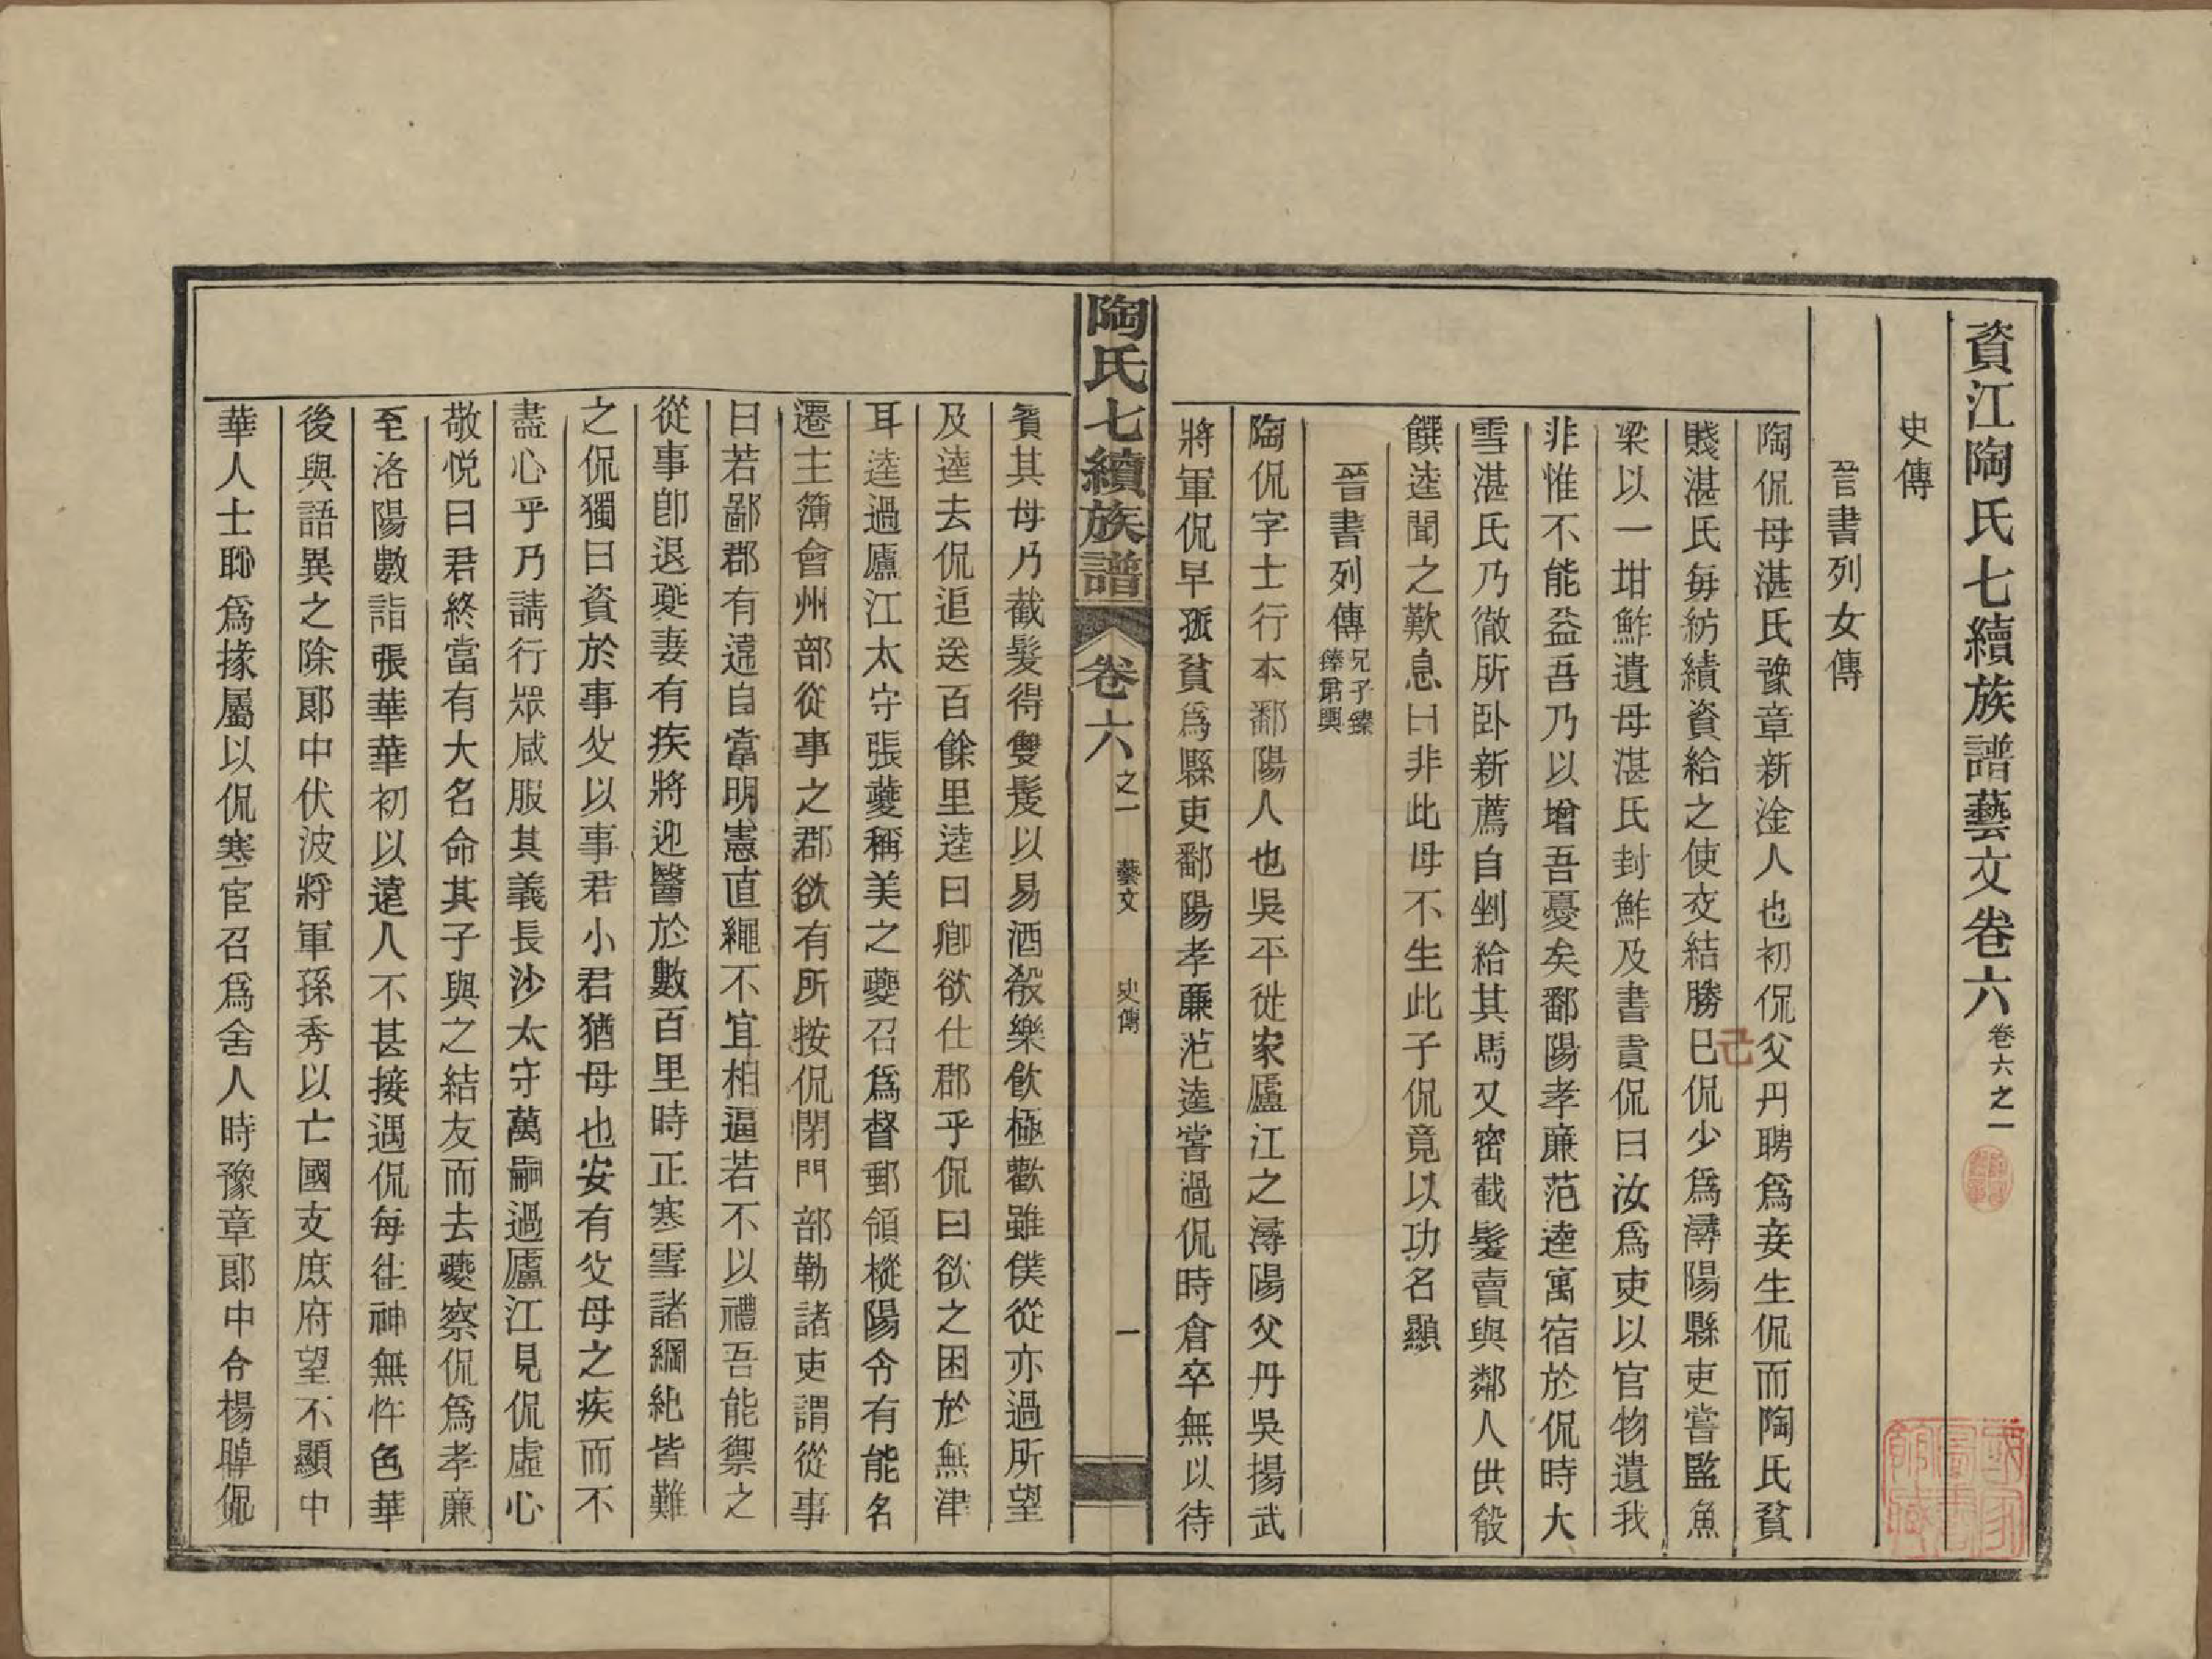 資江陶氏七續族譜藝文卷六卷六之一
史傳
晉書列女傳
陶侃母湛氏豫章新淦人也初侃父丹聘爲妾生侃而陶氏貧
賤湛氏每紡績資給之使交結勝己侃少爲潯陽縣吏嘗監魚
己
梁以一坩鮓遺母湛氏封鮓及書責侃曰汝爲吏以官物遺我
非惟不能益吾乃以增吾憂矣鄱陽孝廉范逵寓宿於侃時大
雪湛氏乃徹所卧新薦自剉給其馬又密截髮賣與鄰人供殽
饌逵聞之歎息曰非此母不生此子侃竟以功名顯
晉書列傳兄子臻臻弟輿
陶侃字士行本鄱陽人也吳平徙家廬江之潯陽父丹吳揚武
將軍侃早孤貧爲縣吏鄱陽孝廉范逵嘗過侃時倉卒無以待
陶氏七續族譜 卷六之一 藝文 史傳 一
賓其母乃截髮得雙髲以易酒殽樂飲極歡雖僕從亦過所望
及逵去侃追送百餘里逵曰卿欲仕郡乎侃曰欲之困於無津
耳逵過廬江太守張夔稱美之夔召爲督郵領樅陽令有能名
遷主簿會州部從事之郡欲有所按侃閉門部勒諸吏謂從事
曰若鄙郡有違自當明憲直繩不宜相逼若不以禮吾能禦之
從事卽退夔妻有疾將迎醫於數百里時正寒雪諸綱紀皆難
之侃獨曰資於事父以事君小君猶母也安有父母之疾而不
盡心乎乃請行眾咸服其義長沙太守萬嗣過廬江見侃虛心
敬悅曰君終當有大名命其子與之結友而去夔察侃爲孝廉
至洛陽數詣張華華初以遠人不甚接遇侃每往神無忤色華
後與語異之除郎中伏波將軍孫秀以亡國支庶府望不顯中
華人士恥爲掾屬以侃寒宦召爲舍人時豫章郎中令楊晫侃